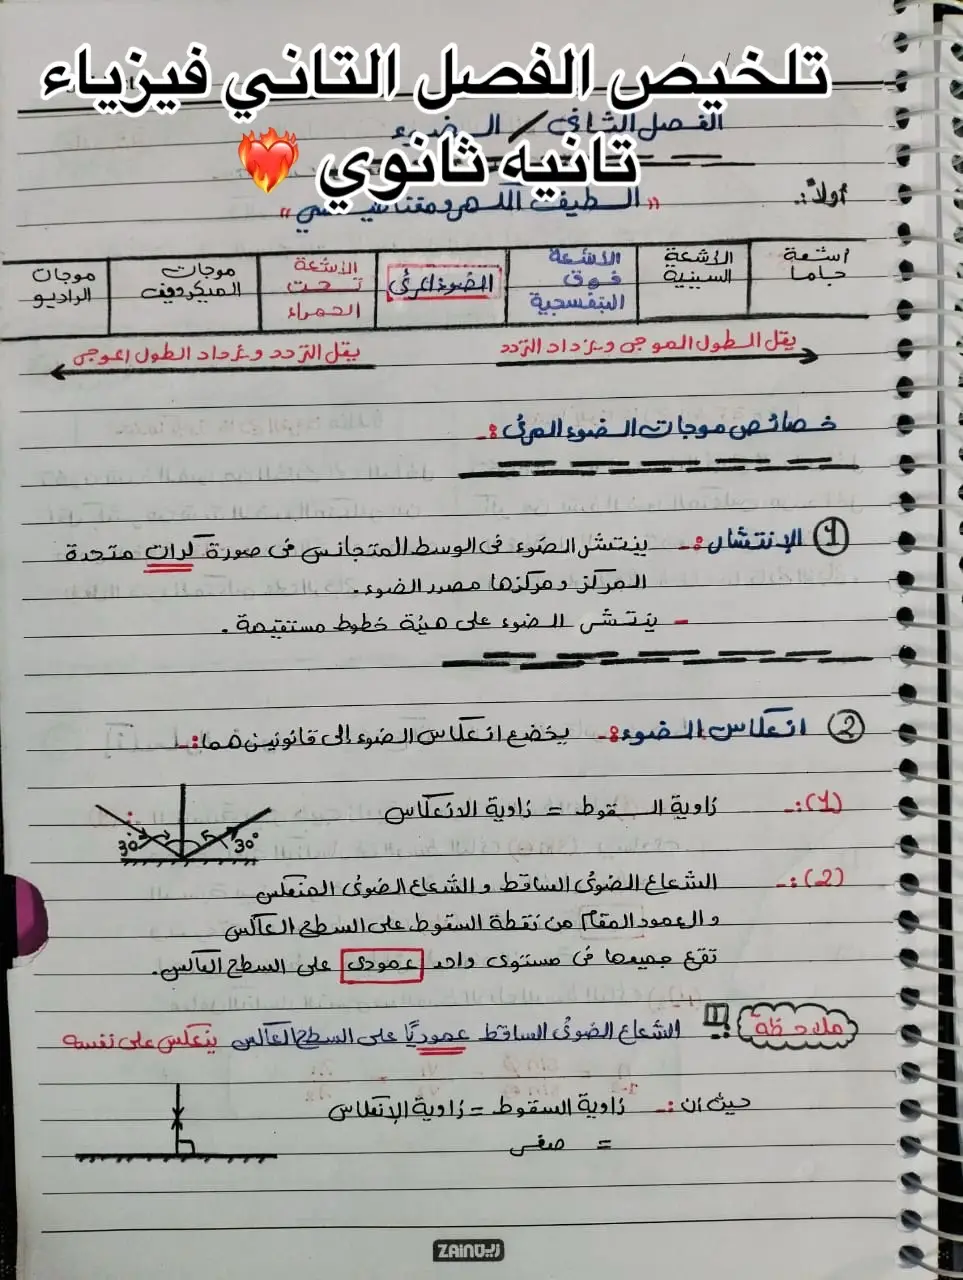 تلخيص الفصل التاني فيزياء
تانيه ثانوي
الفصل الثاني / الضوء
أولاً:.
"الطيف الكهرومغناطيسي"
أشعة جاما
الأشعة السينية
الأشعة فوق البنفسجية
الضوء المرئي
الأشعة تحت الحمراء
موجات الميكرويف
موجات الراديو
يقل الطول الموجي ويزداد التردد
يقل التردد ويزداد الطول الموجي
خصائص موجات الضوء المرئي:-
① الإنتشار:- ينتشر الضوء في الوسط المتجانس في صورة كرات متحدة
المركز ومركزها مصدر الضوء.
- ينتشر الضوء على هيئة خطوط مستقيمة.
② انعكاس الضوء:- يخضع انعكاس الضوء إلى قانونين هما:-
(1):- زاوية السقوط = زاوية الانعكاس
30° 30°
(2):- الشعاع الضوئي الساقط والشعاع الضوئي المنعكس
والعمود المقام من نقطة السقوط على السطح العاكس
تقع جميعها في مستوى واحد عمودي على السطح العاكس.
ملاحظة !! الشعاع الضوئي الساقط عموديًا على السطح العاكس ينعكس على نفسه
حيث أن:- زاوية السقوط = زاوية الإنعكاس
= صفر
ZAIN زين